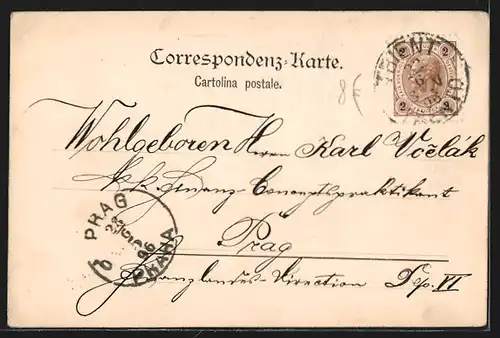 Correspondenz-Karte.
Cartolina postale.
8 f
2 2
TRIENT
TRENTO
2 2
Wohlgeboren Herrn Karl Vočlák
k.k. Finanz-Conceptspraktikant
PRAG
PRAHA
96
Prag
Finanzlandes-Direction Dep. VI